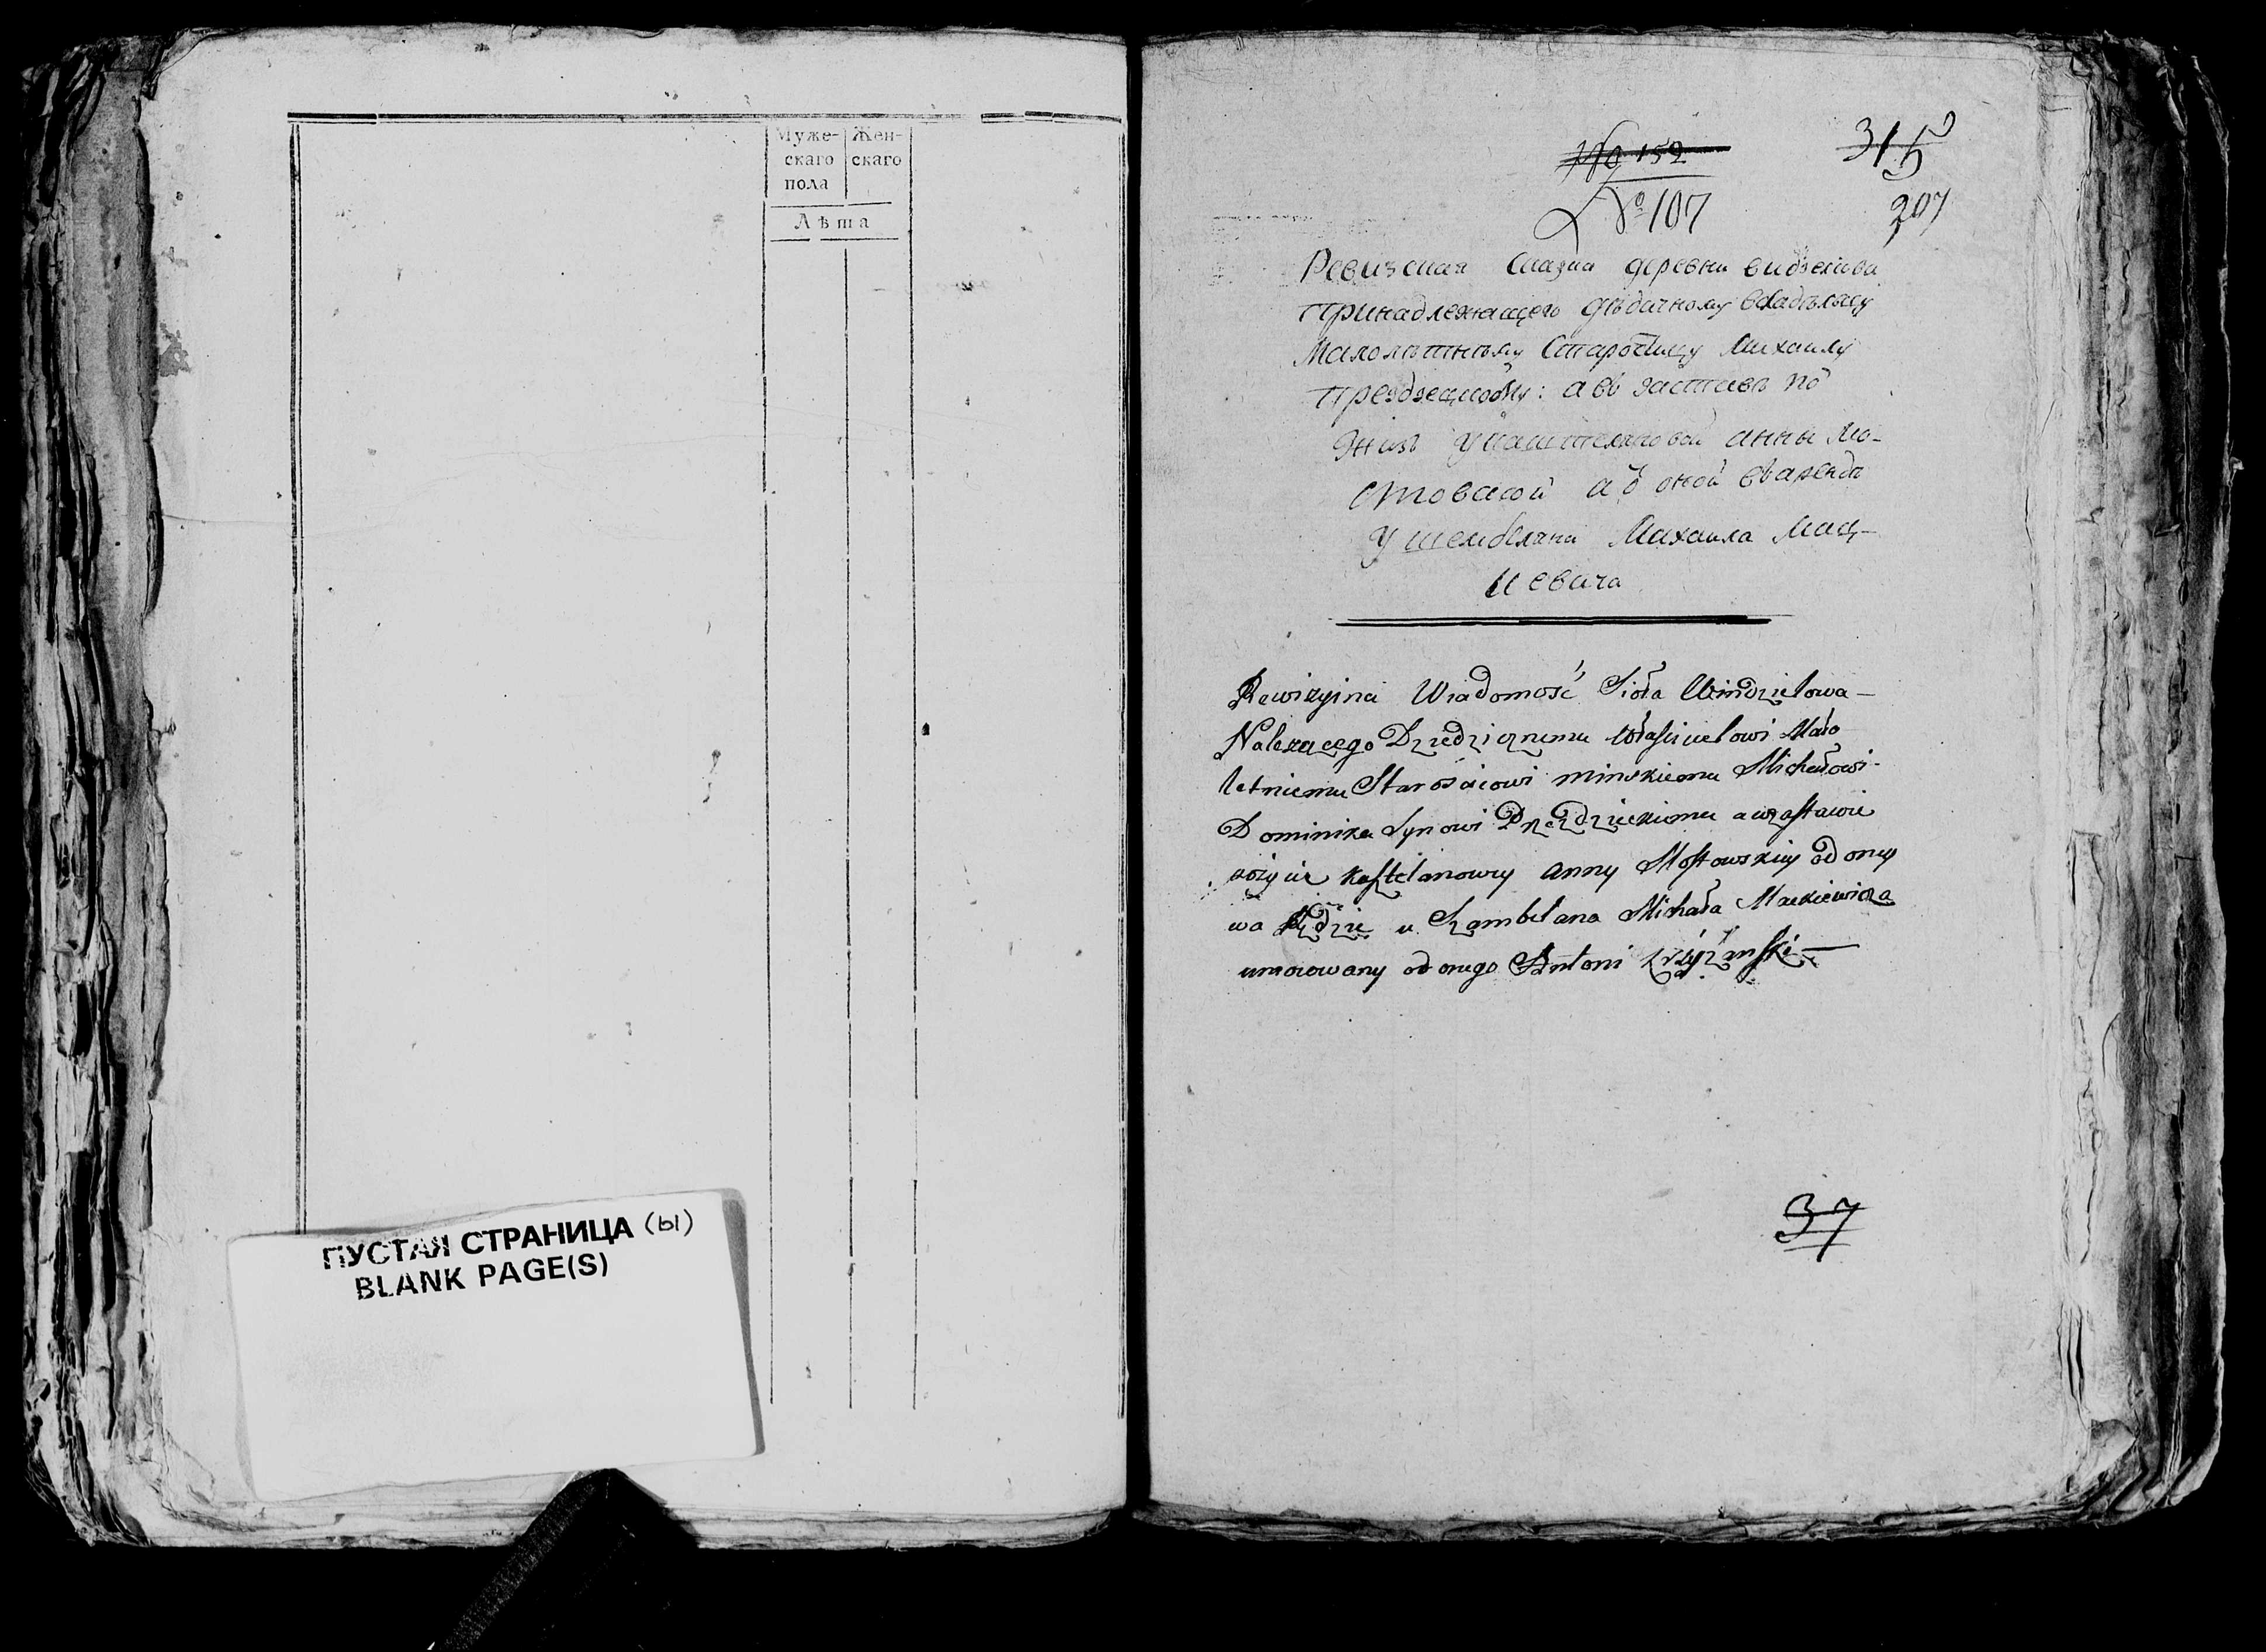 Муже-
скаго
пола
Жен-
скаго
Лѣта
ПУСТАЯ СТРАНИЦА (ы)
BLANK PAGE(S)
№ 152
315
№ 107
207
Ревизская Сказка деревни
принадлежащего дѣдичному владѣльцу
Малолѣтнѣму Старостицу Михаилу
: а въ заставѣ по
анны Мо-
стовской а о оной въ арендѣ
У шембеляна Михаила Мац-
кевича
Rewizyina Wiadomość Sioła Windziełowa
Należącego Dziedzicznemu Właścicielowi Mało
letniemu Starościcowi minskiemu Michałowi
Dominika Synowi Przezdzieckiemu a wzastawie
Kasztelanowey Anny Mostowskiey od oney
wa Rędzie u Szambelana Michała Mackiewicza
umocowany od onego Antoni
37